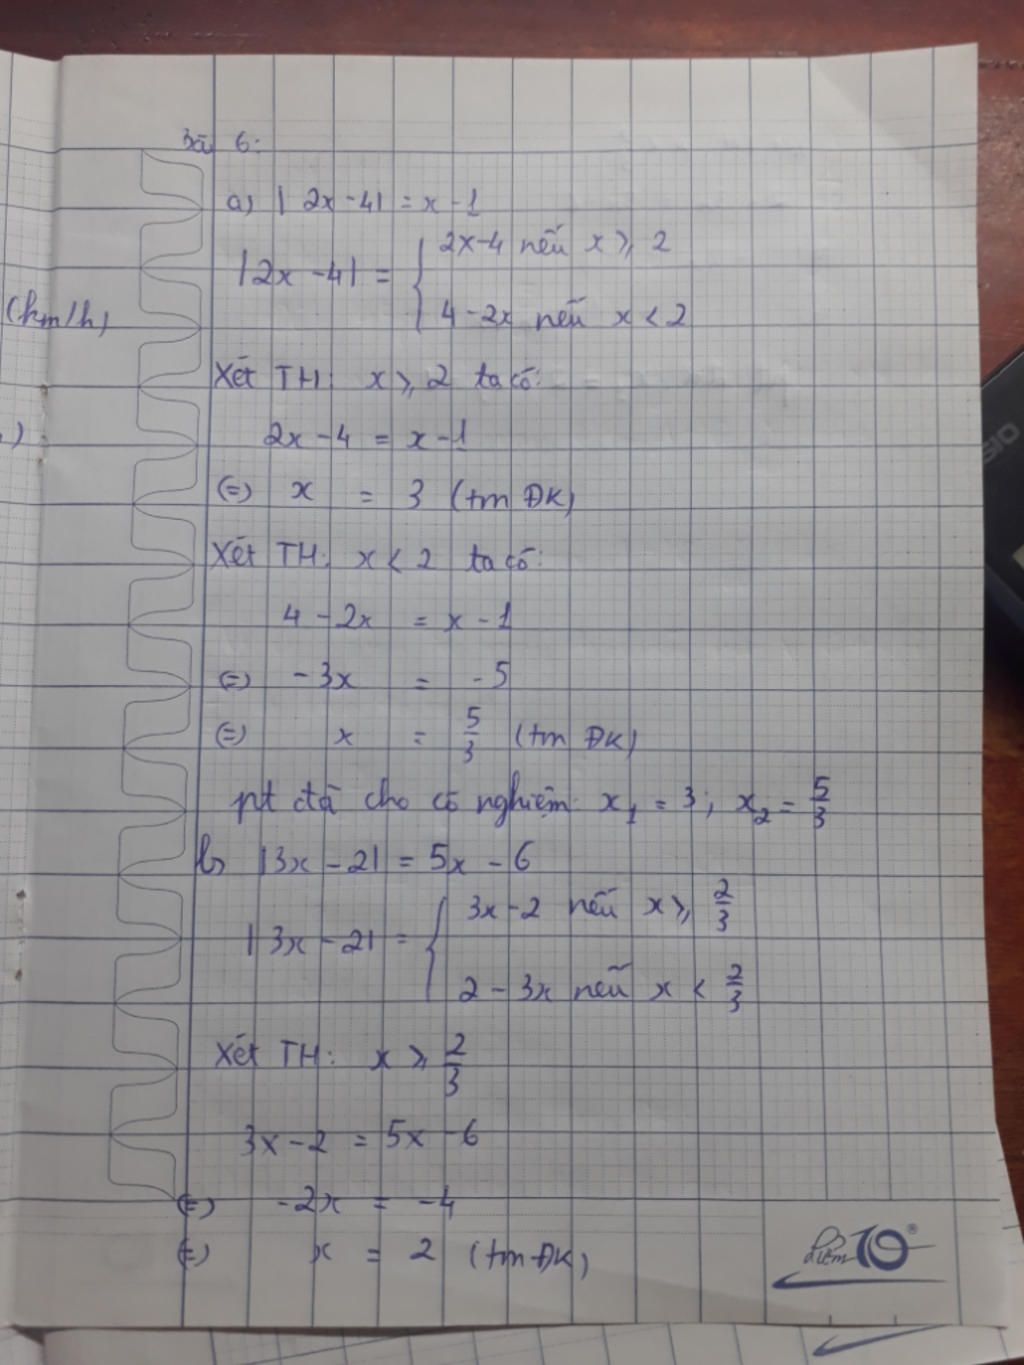 Bài 6:
a) |2x-4| = x-1
|2x-4| = { 2x-4 nếu x ≥ 2
4-2x nếu x < 2
(km/h)
Xét TH: x ≥ 2 ta có:
2x-4 = x-1
(=) x = 3 (tm ĐK)
Xét TH: x < 2 ta có:
4-2x = x-1
(=) -3x = -5
(=) x = 5/3 (tm ĐK)
pt đã cho có nghiệm: x₁ = 3; x₂ = 5/3
b) |3x-2| = 5x-6
|3x-2| = { 3x-2 nếu x ≥ 2/3
2-3x nếu x < 2/3
Xét TH: x ≥ 2/3
3x-2 = 5x-6
(=) -2x = -4
(=) x = 2 (tm ĐK)
Điểm 10®